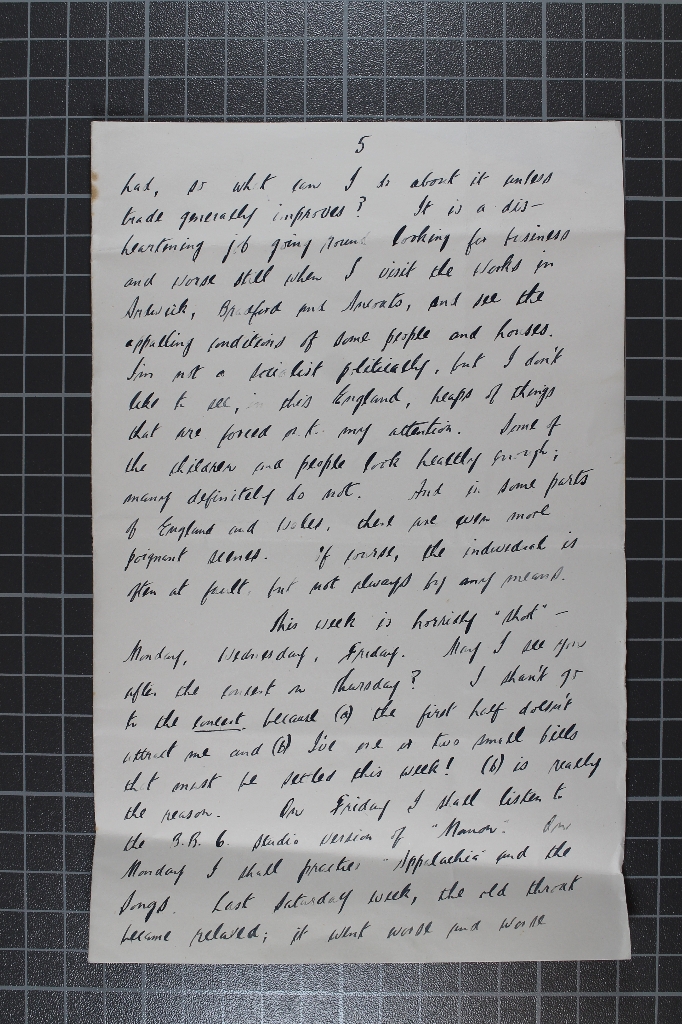 5
had, so what can I do about it unless
trade generally improves? It is a dis-
heartening job going round looking for business
and worse still when I visit the Works in
Ardwick, Bradford and Ancoats, and see the
appalling conditions of some people and houses.
I'm not a socialist politically, but I don't
like to see, in this England, heaps of things
that are forced on to my attention. Some of
the children and people look healthy enough;
many definitely do not. And in some parts
of England and Wales, there are even more
poignant scenes. Of course, the individual is
often at fault, but not always by any means.
This week is horridly "shot" -
Monday, Wednesday, Friday. May I see you
after the concert on Thursday? I shan't go
to the concert because (a) the first half doesn't
attract me and (b) I've one or two small bills
that must be settled this week! (b) is really
the reason. On Friday I shall listen to
the B.B.C. studio version of "Manon". On
Monday I shall practise "Appalachia" and the
Songs. Last Saturday week, the old throat
became relaxed; it went worse and worse